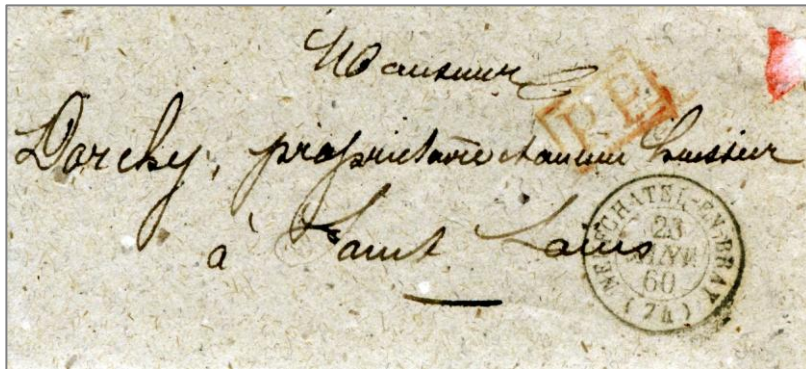 Monsieur
P.P.
Dorchy, propriétaire et ancien huissier
à Saint Saens
NEUFCHATEL-EN-BRAY
23
60
(74)